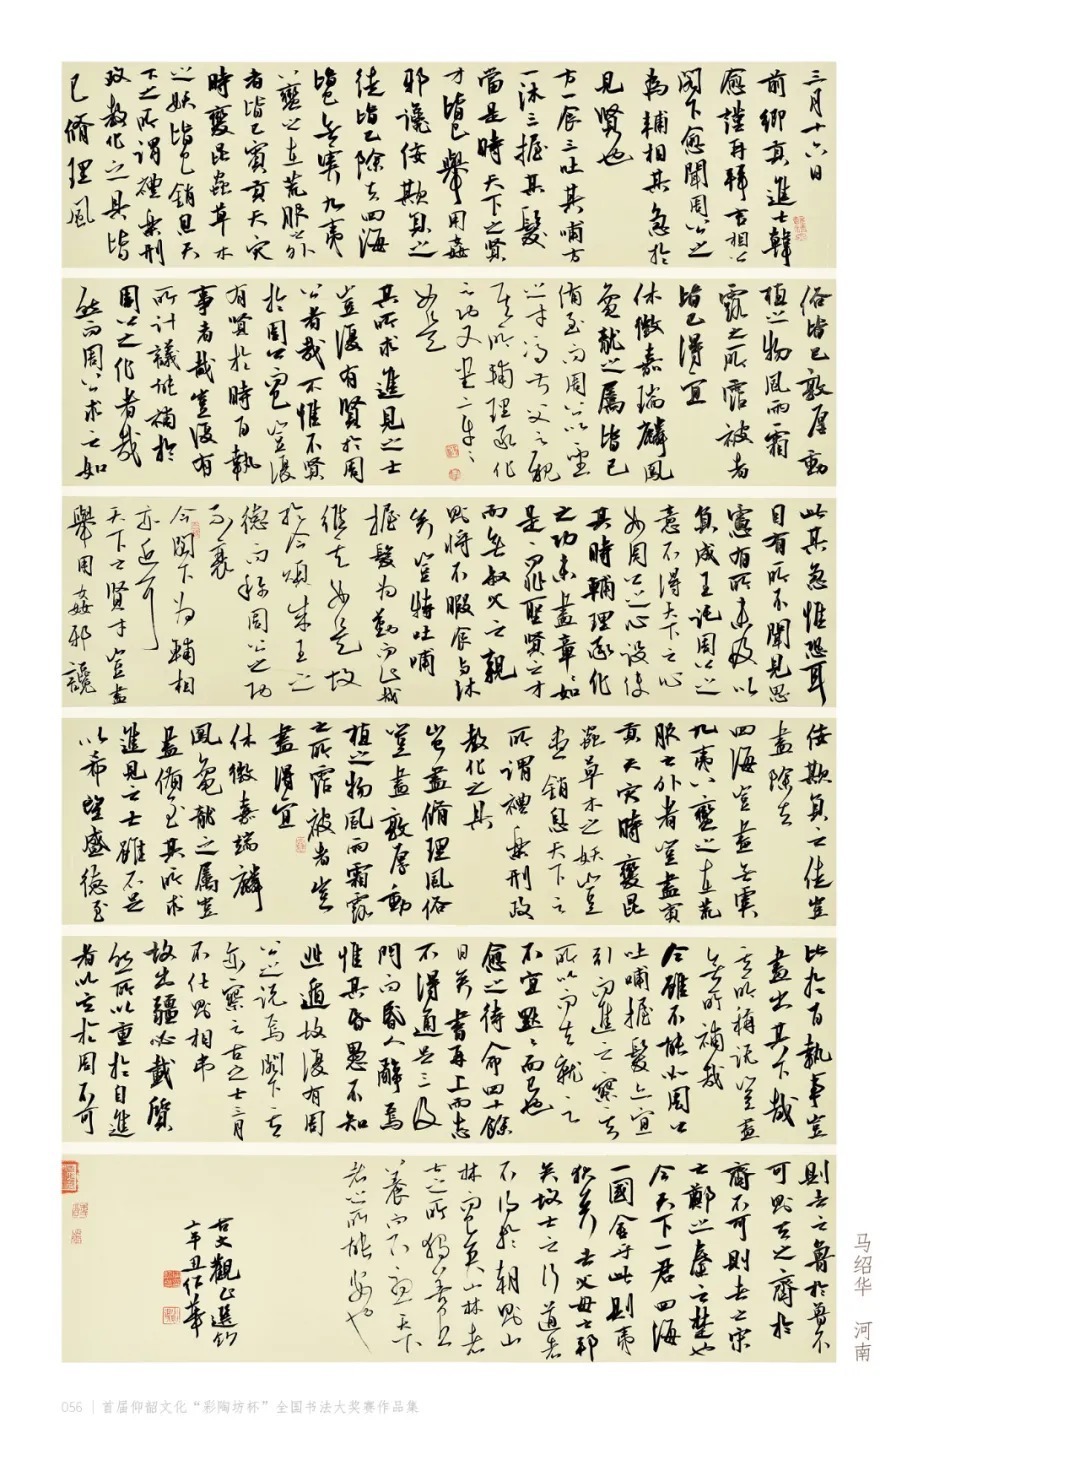 三月十六日
前鄉貢進士韓
愈謹再拜言相公
閣下愈聞周公之
為輔相其急於
見賢也
方一食三吐其哺方
一沐三握其髮
當是時天下之賢
才皆已舉用姦
邪讒佞欺負之
徒皆已除去四海
皆已無虞九夷
八蠻之在荒服之外
者皆已賓貢天灾
時變昆蟲草木
之妖皆已銷息天
下之所謂禮樂刑
政教化之具皆
已脩理風
俗皆已敦厚動
植之物風雨霜
露之所霑被者
皆已得宜
休徵嘉瑞麟鳳
龜龍之屬皆已
備至而周公以聖
之才馮叔父之親
其所輔理承化
之功又盡章章
如是
其所求進見之士
豈復有賢於周
公者哉不惟不賢
於周公而已豈復
有賢於時百執
事者哉豈復有
所計議能補於
周公之化者哉
然而周公求之如
此其急惟恐耳
目有所不聞見思
慮有所未及以
負成王託周公之
意不得天下之心
如周公之心設使
其時輔理承化
之功未盡章章如
是而非聖賢之才
而無叔父之親
則將不暇食與沐
矣豈特吐哺
握髮為勤而止哉
維其如是故
於今頌成王之
德而稱周公之功
不衰
今閣下為輔相
亦近耳
天下之賢才豈盡
舉用姦邪讒
佞欺負之徒豈
盡除去
四海豈盡無虞
九夷八蠻之在荒
服之外者豈盡賓
貢天灾時變昆
蟲草木之妖豈
盡銷息天下之
所謂禮樂刑政
教化之具
豈盡脩理風俗
豈盡敦厚動
植之物風雨霜露
之所霑被者豈
盡得宜
休徵嘉瑞麟
鳳龜龍之屬豈
盡備至其所求
進見之士雖不足
以希望盛德至
比於百執事豈
盡出其下哉
其所稱說豈盡
無所補哉
今雖不能如周公
吐哺握髮亦宜
引而進之察其
所以而去就之
不宜默默而已也
愈之待命四十餘
日矣書再上而志
不得通足三及
門而閽人辭焉
惟其昏愚不知
逃遁故復有周
公之說焉閣下其
亦察之古之士三月
不仕則相弔
故出疆必載質
然所以重於自進
者以其於周不可
則去之魯於魯不
可則去之齊於
齊不可則去之宋
之鄭之秦之楚也
今天下一君四海
一國舍乎此則夷
狄矣去父母之邦
矣故士之行道者
不得於朝則山
林而已矣山林者
士之所獨善自
養而不憂天下
者之所能安也
古文觀止選鈔
辛丑紹華
马绍华 河南
056 | 首届仰韶文化“彩陶坊杯”全国书法大奖赛作品集